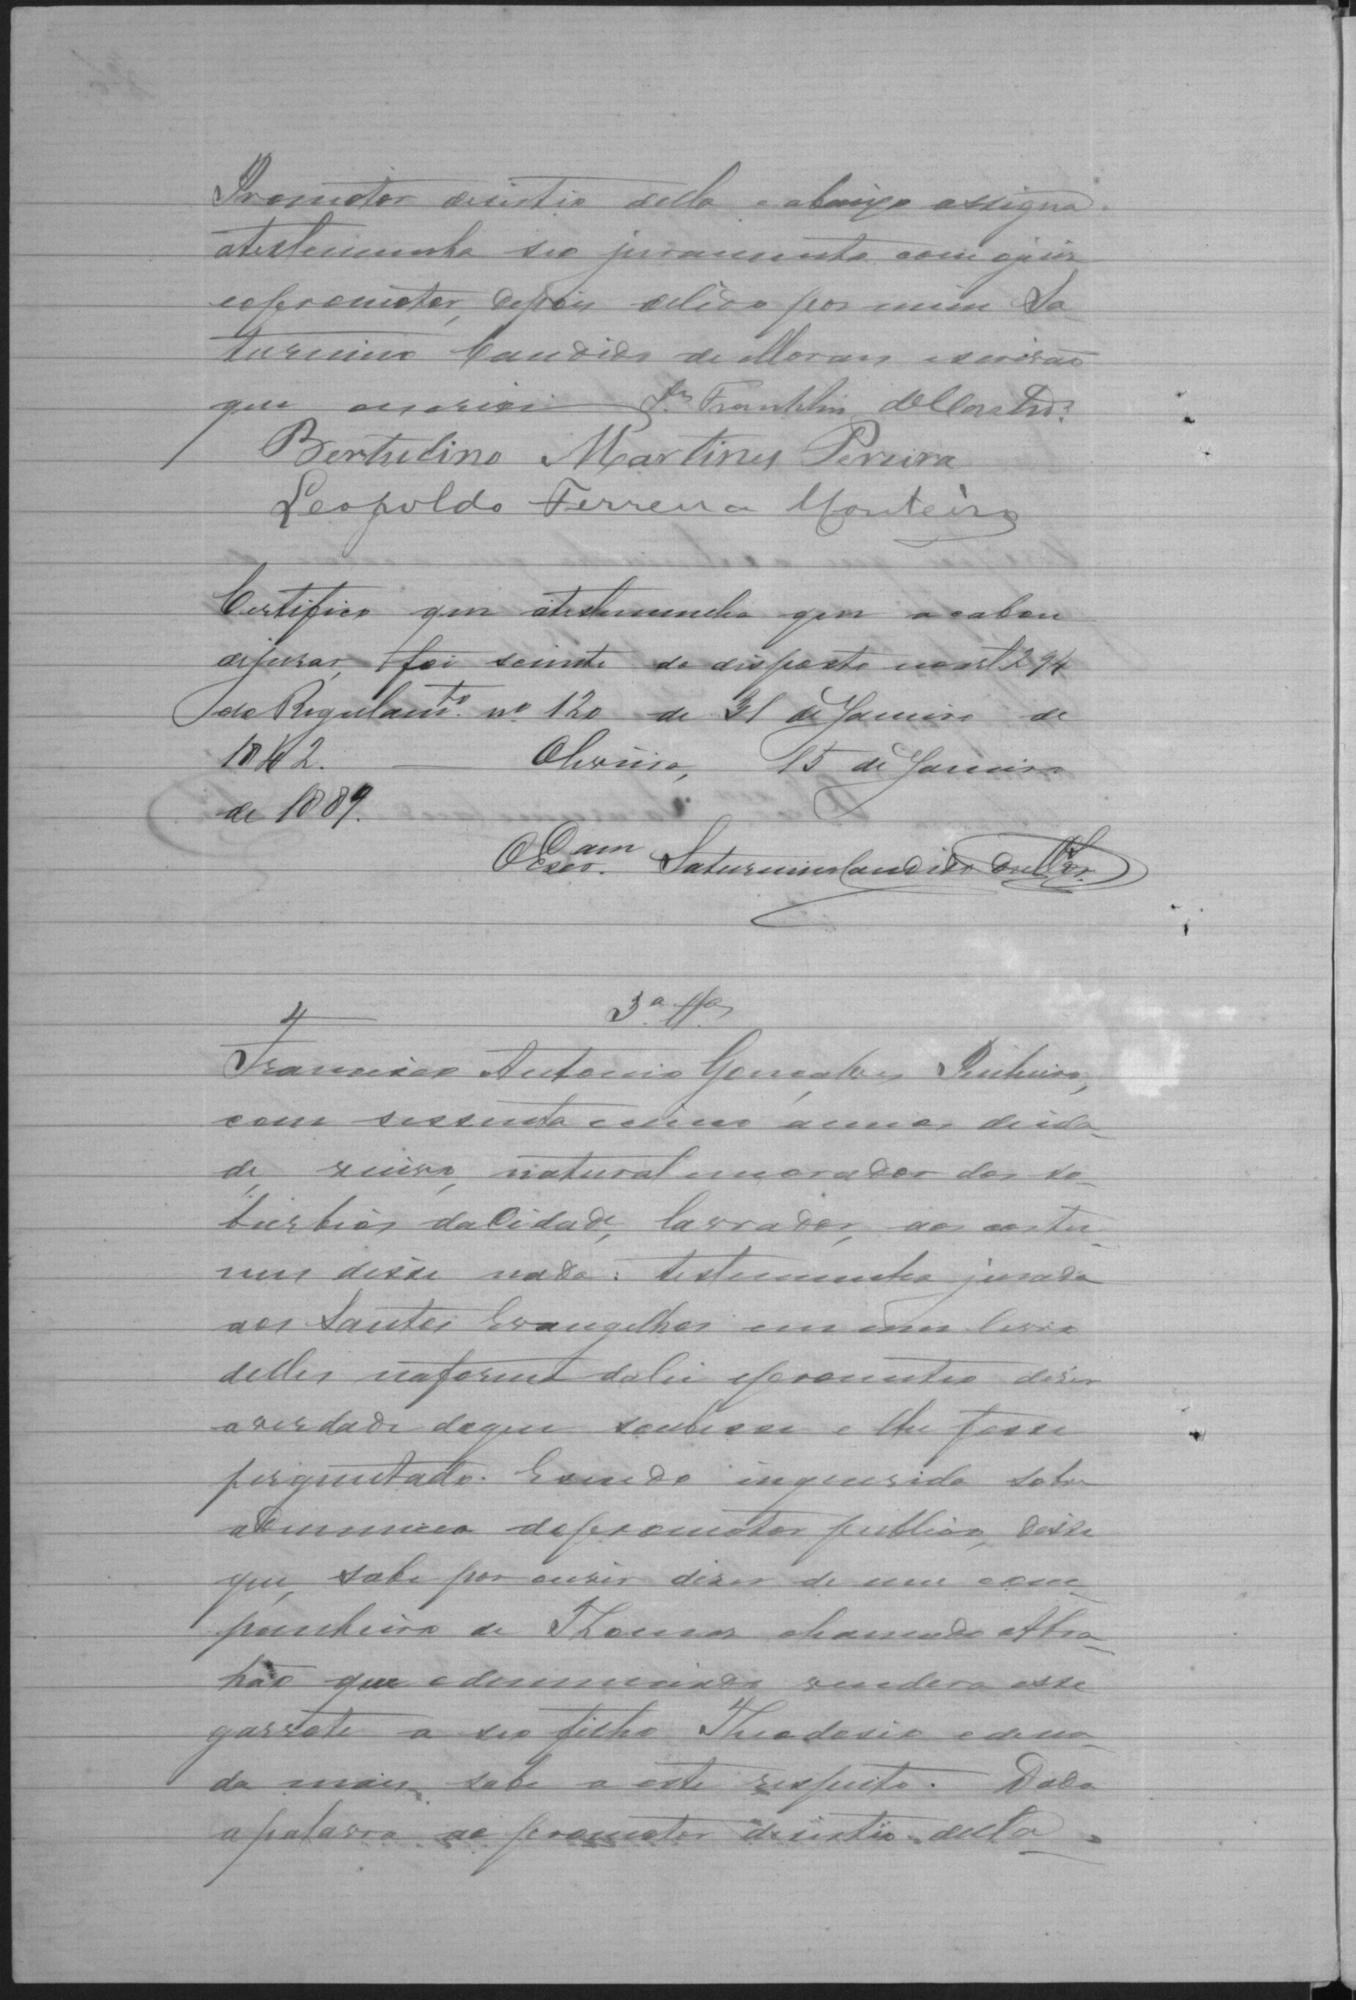 Promotor desistio della e abaixo assigna
atestemunha seo juramento com o juis
eopromotor, depois delido por mim Sa
turnino Candido de Moraes escrivão
que escrevi J. Franklin
Bertulino Martines Pereira
Leopoldo Ferreira Monteiro
Certifico que atestemunha que acabou
dejurar, foi sciente do disposto no art 294
do Regulamto. nº 120 de 31 de Janeiro de
1842. — 15 de Janeiro
de 1889.
O Escram. Saturnino Candido de
4
3.ª
Francisco Antonio Gonçalves Pinheiro,
com sessenta e cinco annos de ida-
de, viuvo, natural emorador dos su-
burbios da Cidade, lavrador, aos costu-
mes disse nada: testemunha jurada
aos Santos Evangelhos em um livro
delles naforma dalei eprometteo dizer
averdade doque soubesse e lhe fosse
perguntado. Esendo inquerido sobre
adenuncia dopromotor publico, disse
que, sabe por ouvir dizer de um com-
panheiro de Thomas chamado Abra-
hão que odenunciado vendera esse
garrote a seo filho Theodosio edena-
da mais sabe a este respeito. Dada
apalavra ao promotor desistio della.